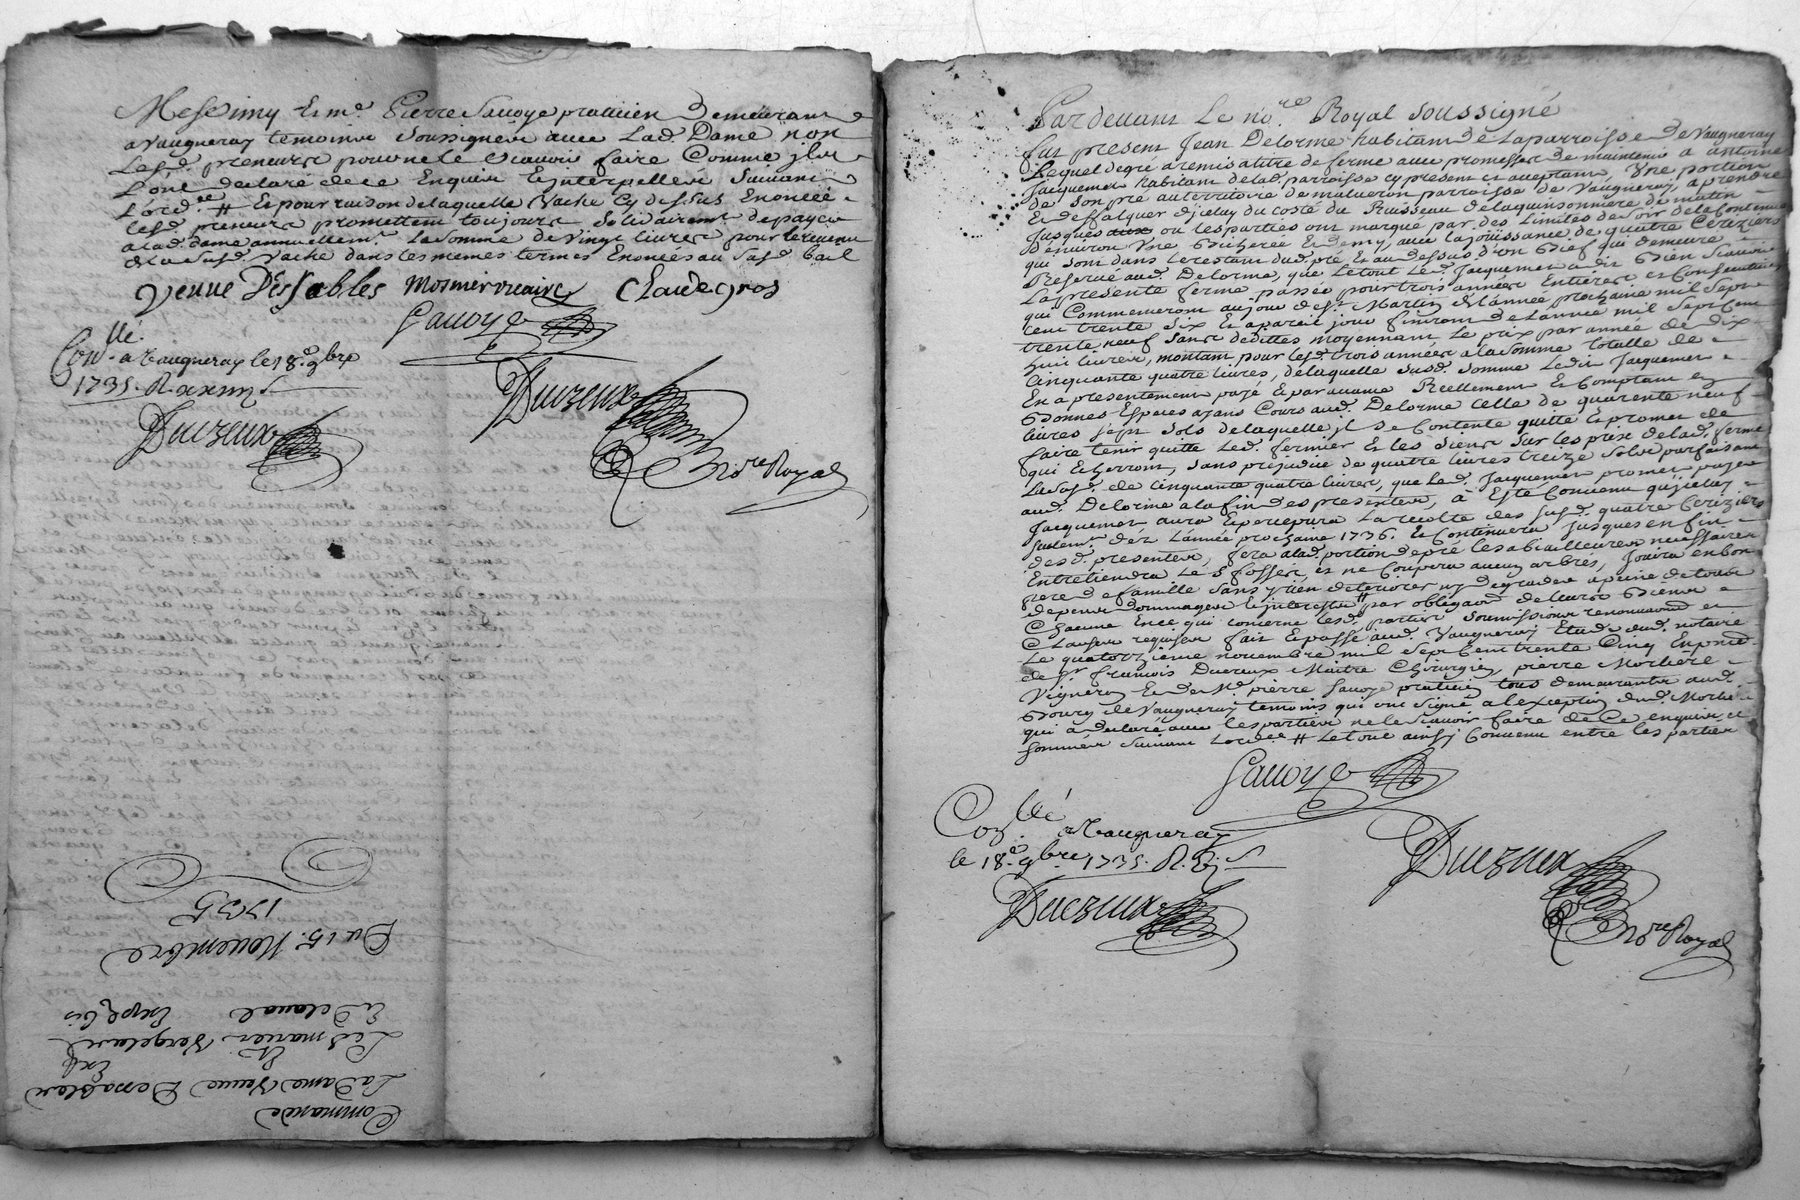 Messimy et me. Pierre Sauoye praticien demeurant
a Vaugneray temoins soussignés auec lad. Dame non
lesd. preneurs pour ne le scauoir faire comme ils
l'ont declaré de ce enquis et interpellés suiuant
l'ord.ce # et pour raison de laquelle vache cy dessus enoncée
lesd. preneurs promettent toujours solidairemt de payer
a lad. dame annuellemt. la somme de vingt liures pour le reuenu
de la susd. vache dans les memes termes enoncés au susd. bail
veuue Dessables Mosnier vicaire Claude gros
Sauoye
Con.llé a Vaugneray le 18.e 9bre
1735. R.
Duczeux
Duczeux
Nore Royal
1735
Du 15. Nouembre
Et Delaual
Les mariés Vergelas
Et
La Dame Veuue Dessables
Commande
Par deuant le nore. Royal soussigné
fut present Jean Delorme habitant de la parroisse de Vaugneray
lequel degré a remis a titre de ferme auec promesse de maintenir a antoine
Jacquemet habitant de lad. parroisse cy present et acceptant, Une portion
de son pré au territoire de malueron parroisse de Vaugneray, a prendre
et deffalquer d'jcluy du costé du Ruisseau de la quinsonniere de matin
Jusques aux ou les parties ont marqué par des Limites de soir de le Contenu
d'enuiron Une Bicherée et demy, auec la joüissance de quatre Ceriziers
qui sont dans le restant dud. pré, et au dessus d'un Bief qui demeure
Reserué aud. Delorme, que le tout led. Jacquemet a dit bien scauoir
La presente ferme passée pour trois années Entieres et Consecutiues
qui Commenceront au jour de st Martin de l'année prochaine mil sept
cent trente six et a pareil jour finiront de l'année mil sept cent
trente neuf sans dedittes moyennant le prix par année de dix
huit liures, montant pour lesd. trois années a la somme totalle de
Cinquante quatre liures, de laquelle susd. somme ledit Jacquemet
En a presentement payé et par auance Reellement et Comptant en
Bonnes Especes ayans Cours aud. Delorme celle de quarente neuf
liures sept sols de laquelle il se contente quitte et promet de
faire tenir quitte led. fermier et les siens sur les prix de lad. ferme
qui Echerront, sans prejudice de quatre liures treize sols parfaisant
la susd. de cinquante quatre liures, que led. Jacquemet promet payer
aud. Delorme a la fin des presentes, a Esté Conuenu que ledit
Jacquemet aura et perceura la recolte des susd. quatre Ceriziers
seulemt. dez l'année prochaine 1736. et Continuera jusques en fin
desd. presentes, fera a lad. portion de pré les abiailleures necessaires
Entretiendra les fossés, et ne Coupera aucun arbres, jouira en bon
pere de famille sans y rien deteriorer ny degrader a peine de tous
depens dommages et interests # par obligaon de leurs Biens
Chacune en ce qui concerne lesd. parties soumissions renonciaons et
Clauses requises fait et passé aud. Vaugneray Etude dud. notaire
Le quatorzieme nouembre mil sept cent trente Cinq En pnce.
de sr. françois Ducreux Maitre Chirurgien, pierre Morliere
Vigneron et de Me. pierre Sauoye praticien tous demeurants aud.
Bourg de Vaugneray temoins qui ont signé a l'exception dud. Morliere
qui a declaré auec les parties ne le scauoir faire de ce enquis et
sommés suiuant l'ord.ce # Le tout ainsy Conuenu entre les parties
Sauoye
Con.llé a Vaugneray
le 18.e 9bre 1735. R.
Duczeux
Duczeux
Nore Royal